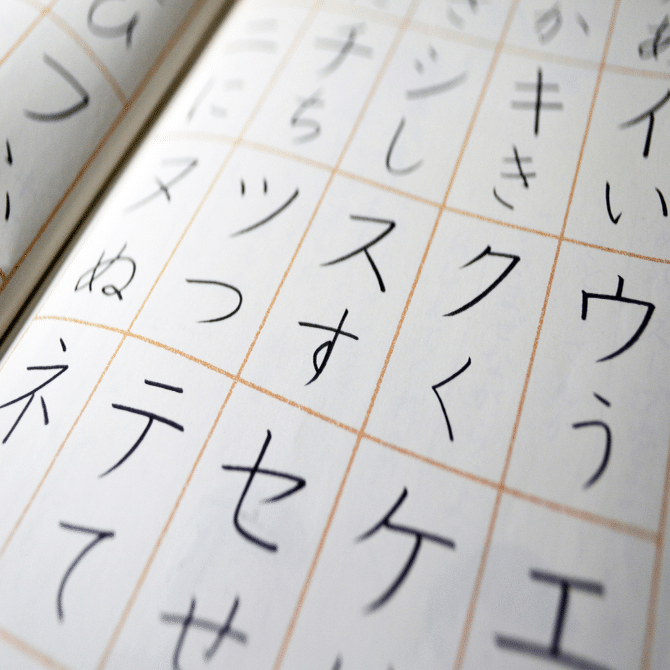 か あ
ニ チ シ キ イ
に ち し き い
ヌ ツ ス ク ウ
ぬ つ す く う
ネ テ セ ケ エ
て せ